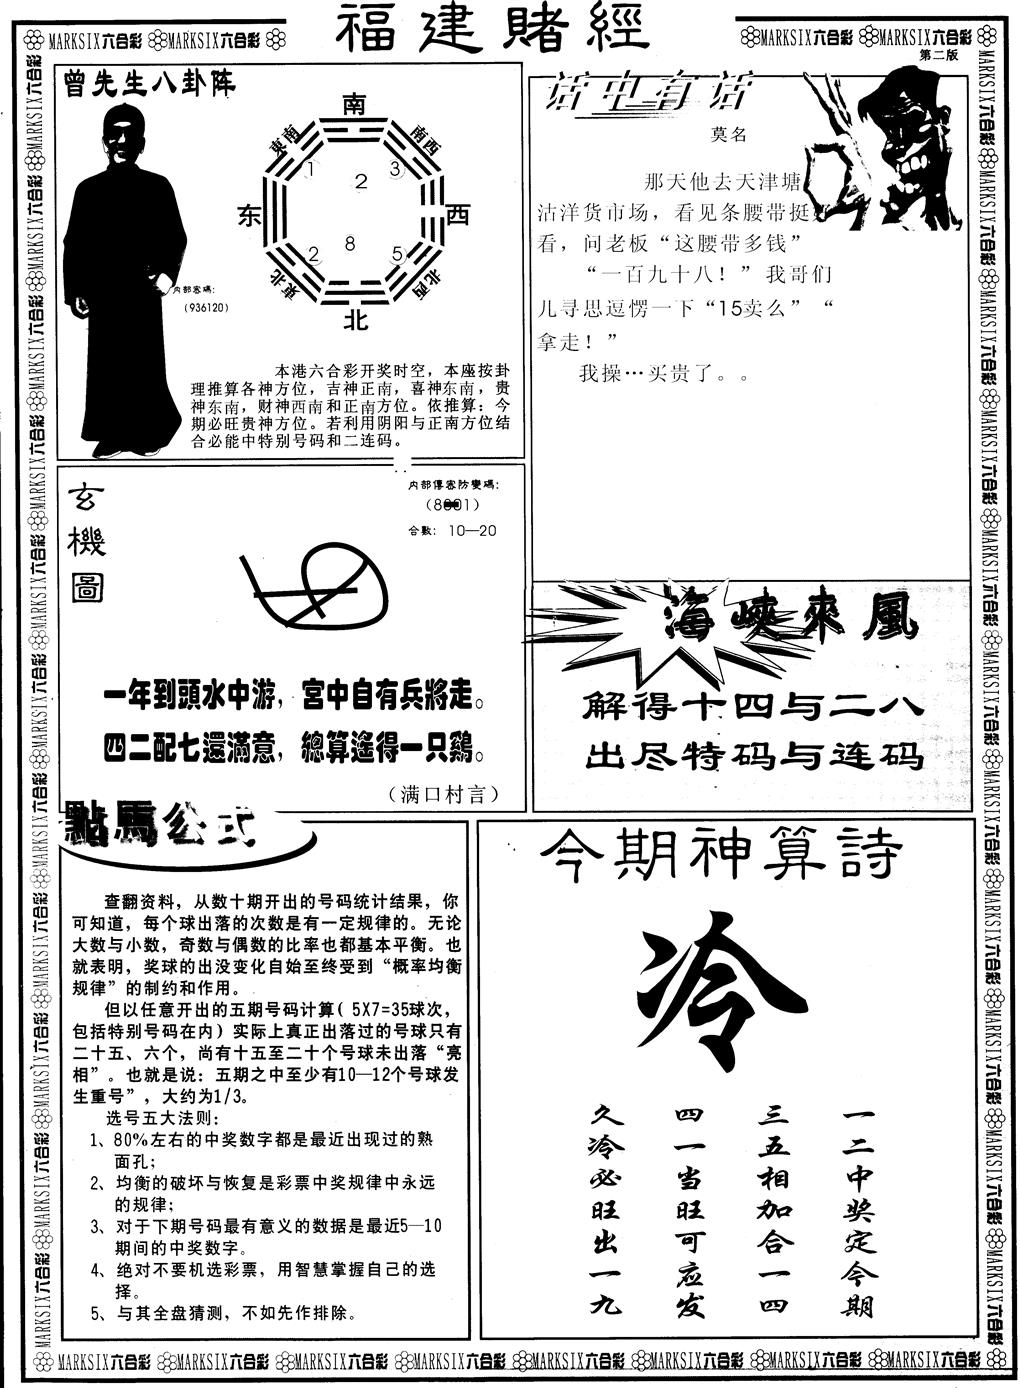 福建賭經
MARKSIX六合彩 MARKSIX六合彩
MARKSIX六合彩 MARKSIX六合彩
第二版
曾先生八卦阵
南
東南
南西
1
2
3
东
西
2
8
5
東北
北西
北
内部密碼:
(936120)
本港六合彩开奖时空，本座按卦
理推算各神方位，吉神正南，喜神东南，贵
神东南，财神西南和正南方位。依推算：今
期必旺贵神方位。若利用阴阳与正南方位结
合必能中特别号码和二连码。
话中有话
莫名
那天他去天津塘
沽洋货市场，看见条腰带挺
看，问老板“这腰带多钱”
“一百九十八！”我哥们
儿寻思逗愣一下“15卖么”“
拿走！”
我操…买贵了。。
玄機圖
内部傳密防變碼:
合數: 10—20
一年到頭水中游，宮中自有兵將走。
四二配七還滿意，總算遙得一只鷄。
（满口村言）
海峽來風
解得十四与二八
出尽特码与连码
點馬公式
查翻资料，从数十期开出的号码统计结果，你
可知道，每个球出落的次数是有一定规律的。无论
大数与小数，奇数与偶数的比率也都基本平衡。也
就表明，奖球的出没变化自始至终受到“概率均衡
规律”的制约和作用。
但以任意开出的五期号码计算( 5X7=35球次，
包括特别号码在内）实际上真正出落过的号球只有
二十五、六个，尚有十五至二十个号球未出落“亮
相”。也就是说：五期之中至少有10—12个号球发
生重号”，大约为1/3。
选号五大法则:
1、80%左右的中奖数字都是最近出现过的熟
面孔;
2、均衡的破坏与恢复是彩票中奖规律中永远
的规律;
3、对于下期号码最有意义的数据是最近5—10
期间的中奖数字。
4、绝对不要机选彩票，用智慧掌握自己的选
择。
5、与其全盘猜测，不如先作排除。
今期神算詩
冷
一二中奖定今期
三五相加合一四
四一当旺可应发
久冷必旺出一九
MARKSIX六合彩 MARKSIX六合彩 MARKSIX六合彩 MARKSIX六合彩 MARKSIX六合彩 MARKSIX六合彩 MARKSIX六合彩 MARKSIX六合彩